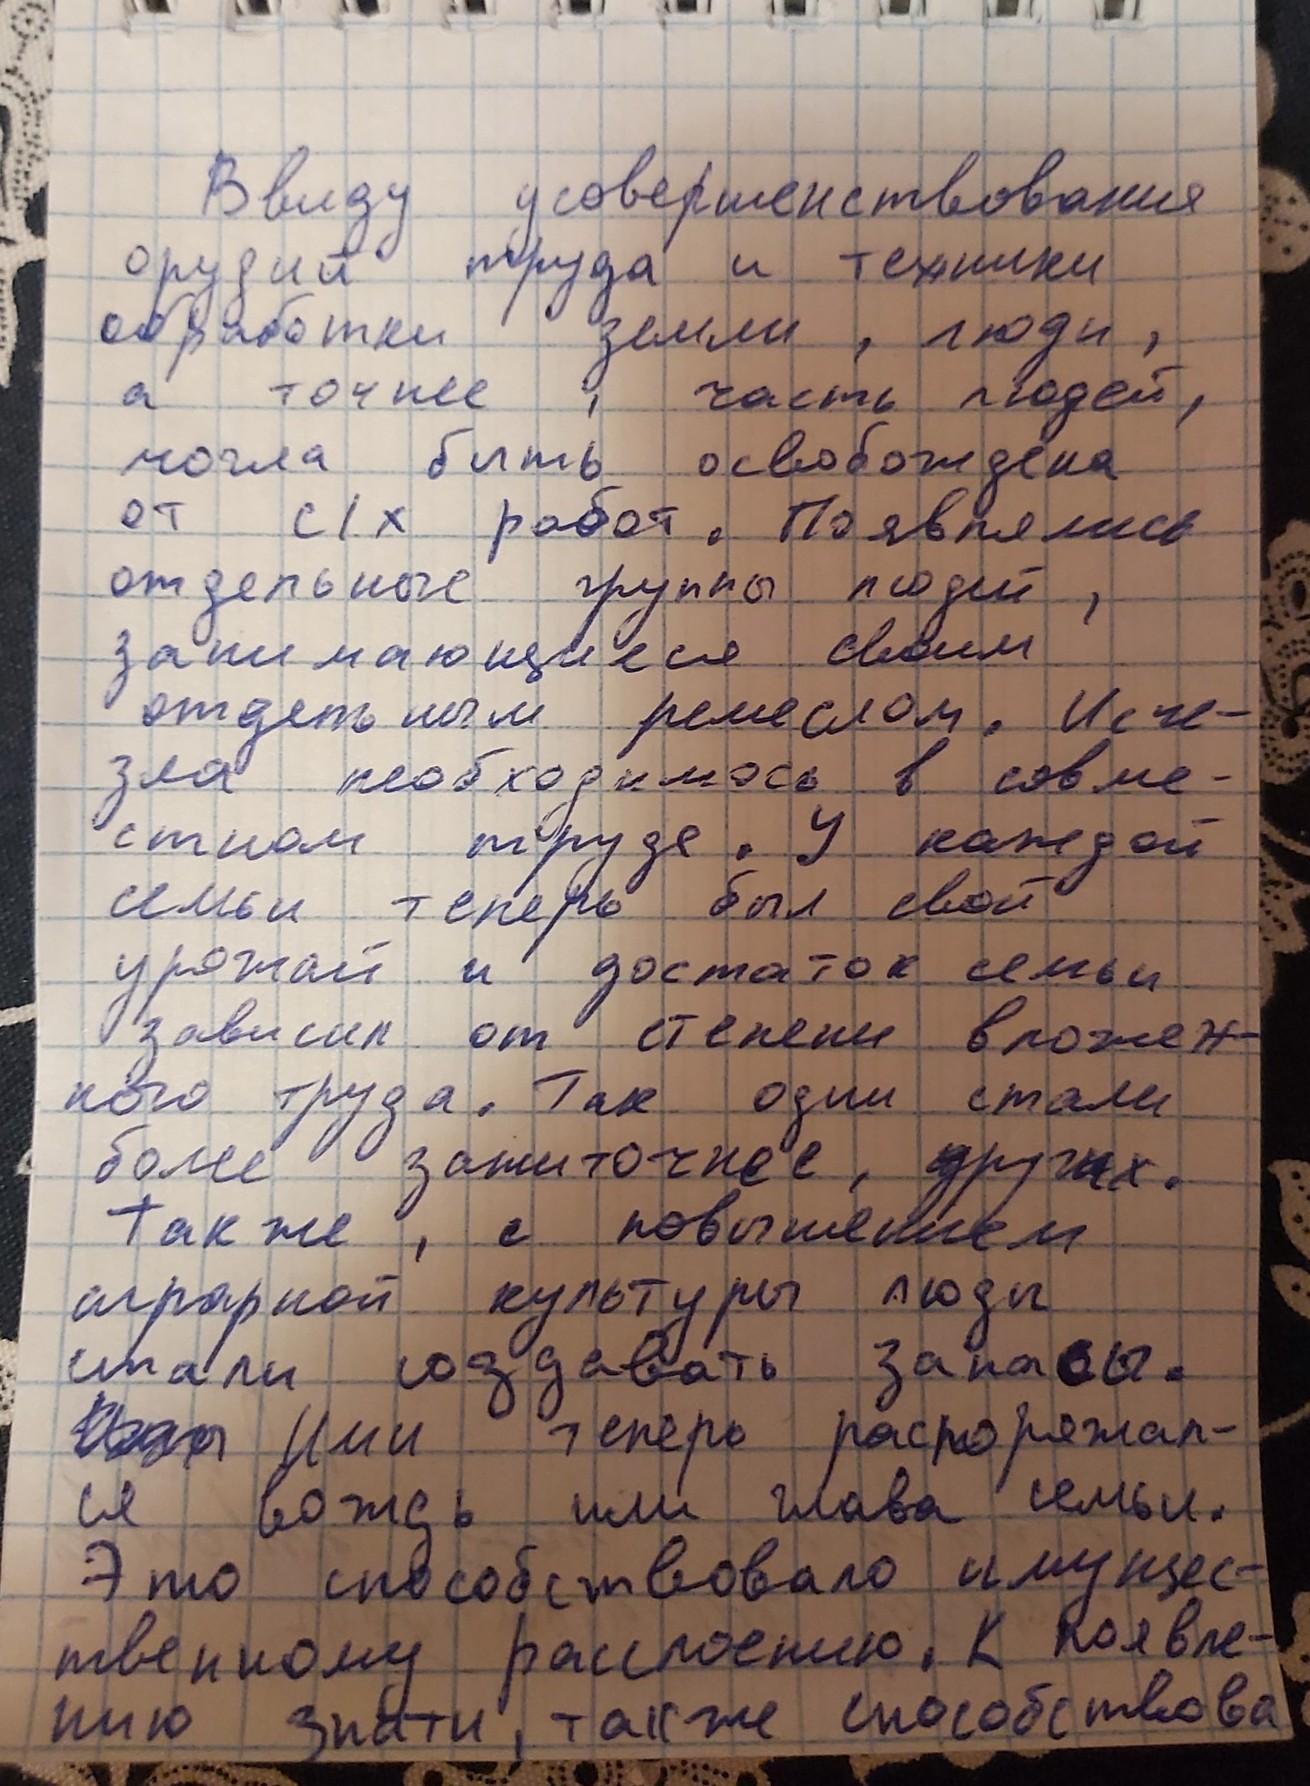 Ввиду усовершенствования
орудий труда и техники
обработки земли, люди,
а точнее, часть людей,
могла быть освобождена
от с/х работ. Появлялись
отдельные группы людей,
занимающиеся своим
отдельным ремеслом. Исче-
зла необходимось в совме-
стном труде. У каждой
семьи теперь был свой
урожай и достаток семьи
зависил от степени вложен-
ного труда. Так одни стали
более зажиточнее, других.
Также, с повышением
аграрной культуры люди
стали создавать запасы.
Ими теперь распоряжал-
ся вождь или глава семьи.
Это способствовало имущес-
твенному расслоению. К появле-
нию знати, также способствова